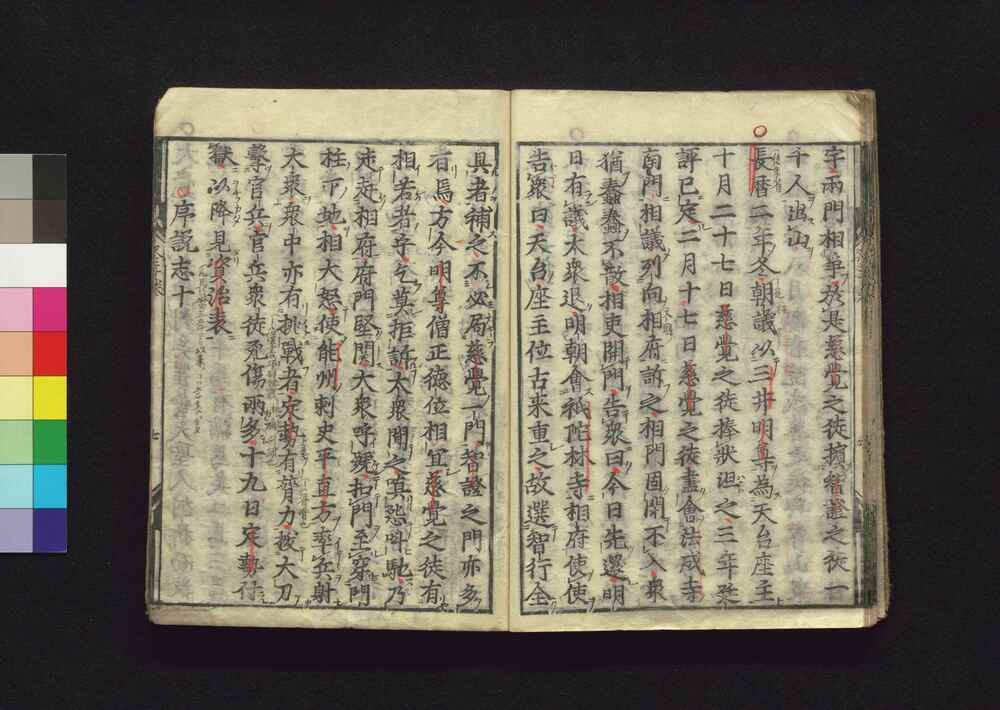 字兩門相爭於是慈覺之徒擯智證之徒一
千人出山
長曆二年冬朝議以三井明尊為天台座主
十月二十七日慈覺之徒捧狀沮之三年癸
評已定二月十七日慈覺之徒盡會法成寺
南門相議列向相府訴之相門固閉不入眾
猶蠢蠢不散相吏開門告眾曰今日先還明
日有議大眾退明朝會祇陀林寺相府使使
告眾曰天台座主位古來重之故選智行全
具者補之不必局慈覺一門智證之門亦多
者焉方今明尊僧正德位相宜慈覺之徒有
相若者乎乞莫拒訴大眾聞之嗔怨叫馳乃
走趍相府府門堅關大眾呼號扣門至穿門
柱下地相大怒使能州刺史平直方率兵射
大眾眾中亦有挑戰者定勢有膂力拔大刀
擊官兵官兵眾徒死傷兩多十九日定勢行
獄以降見資治表
序說志十
七